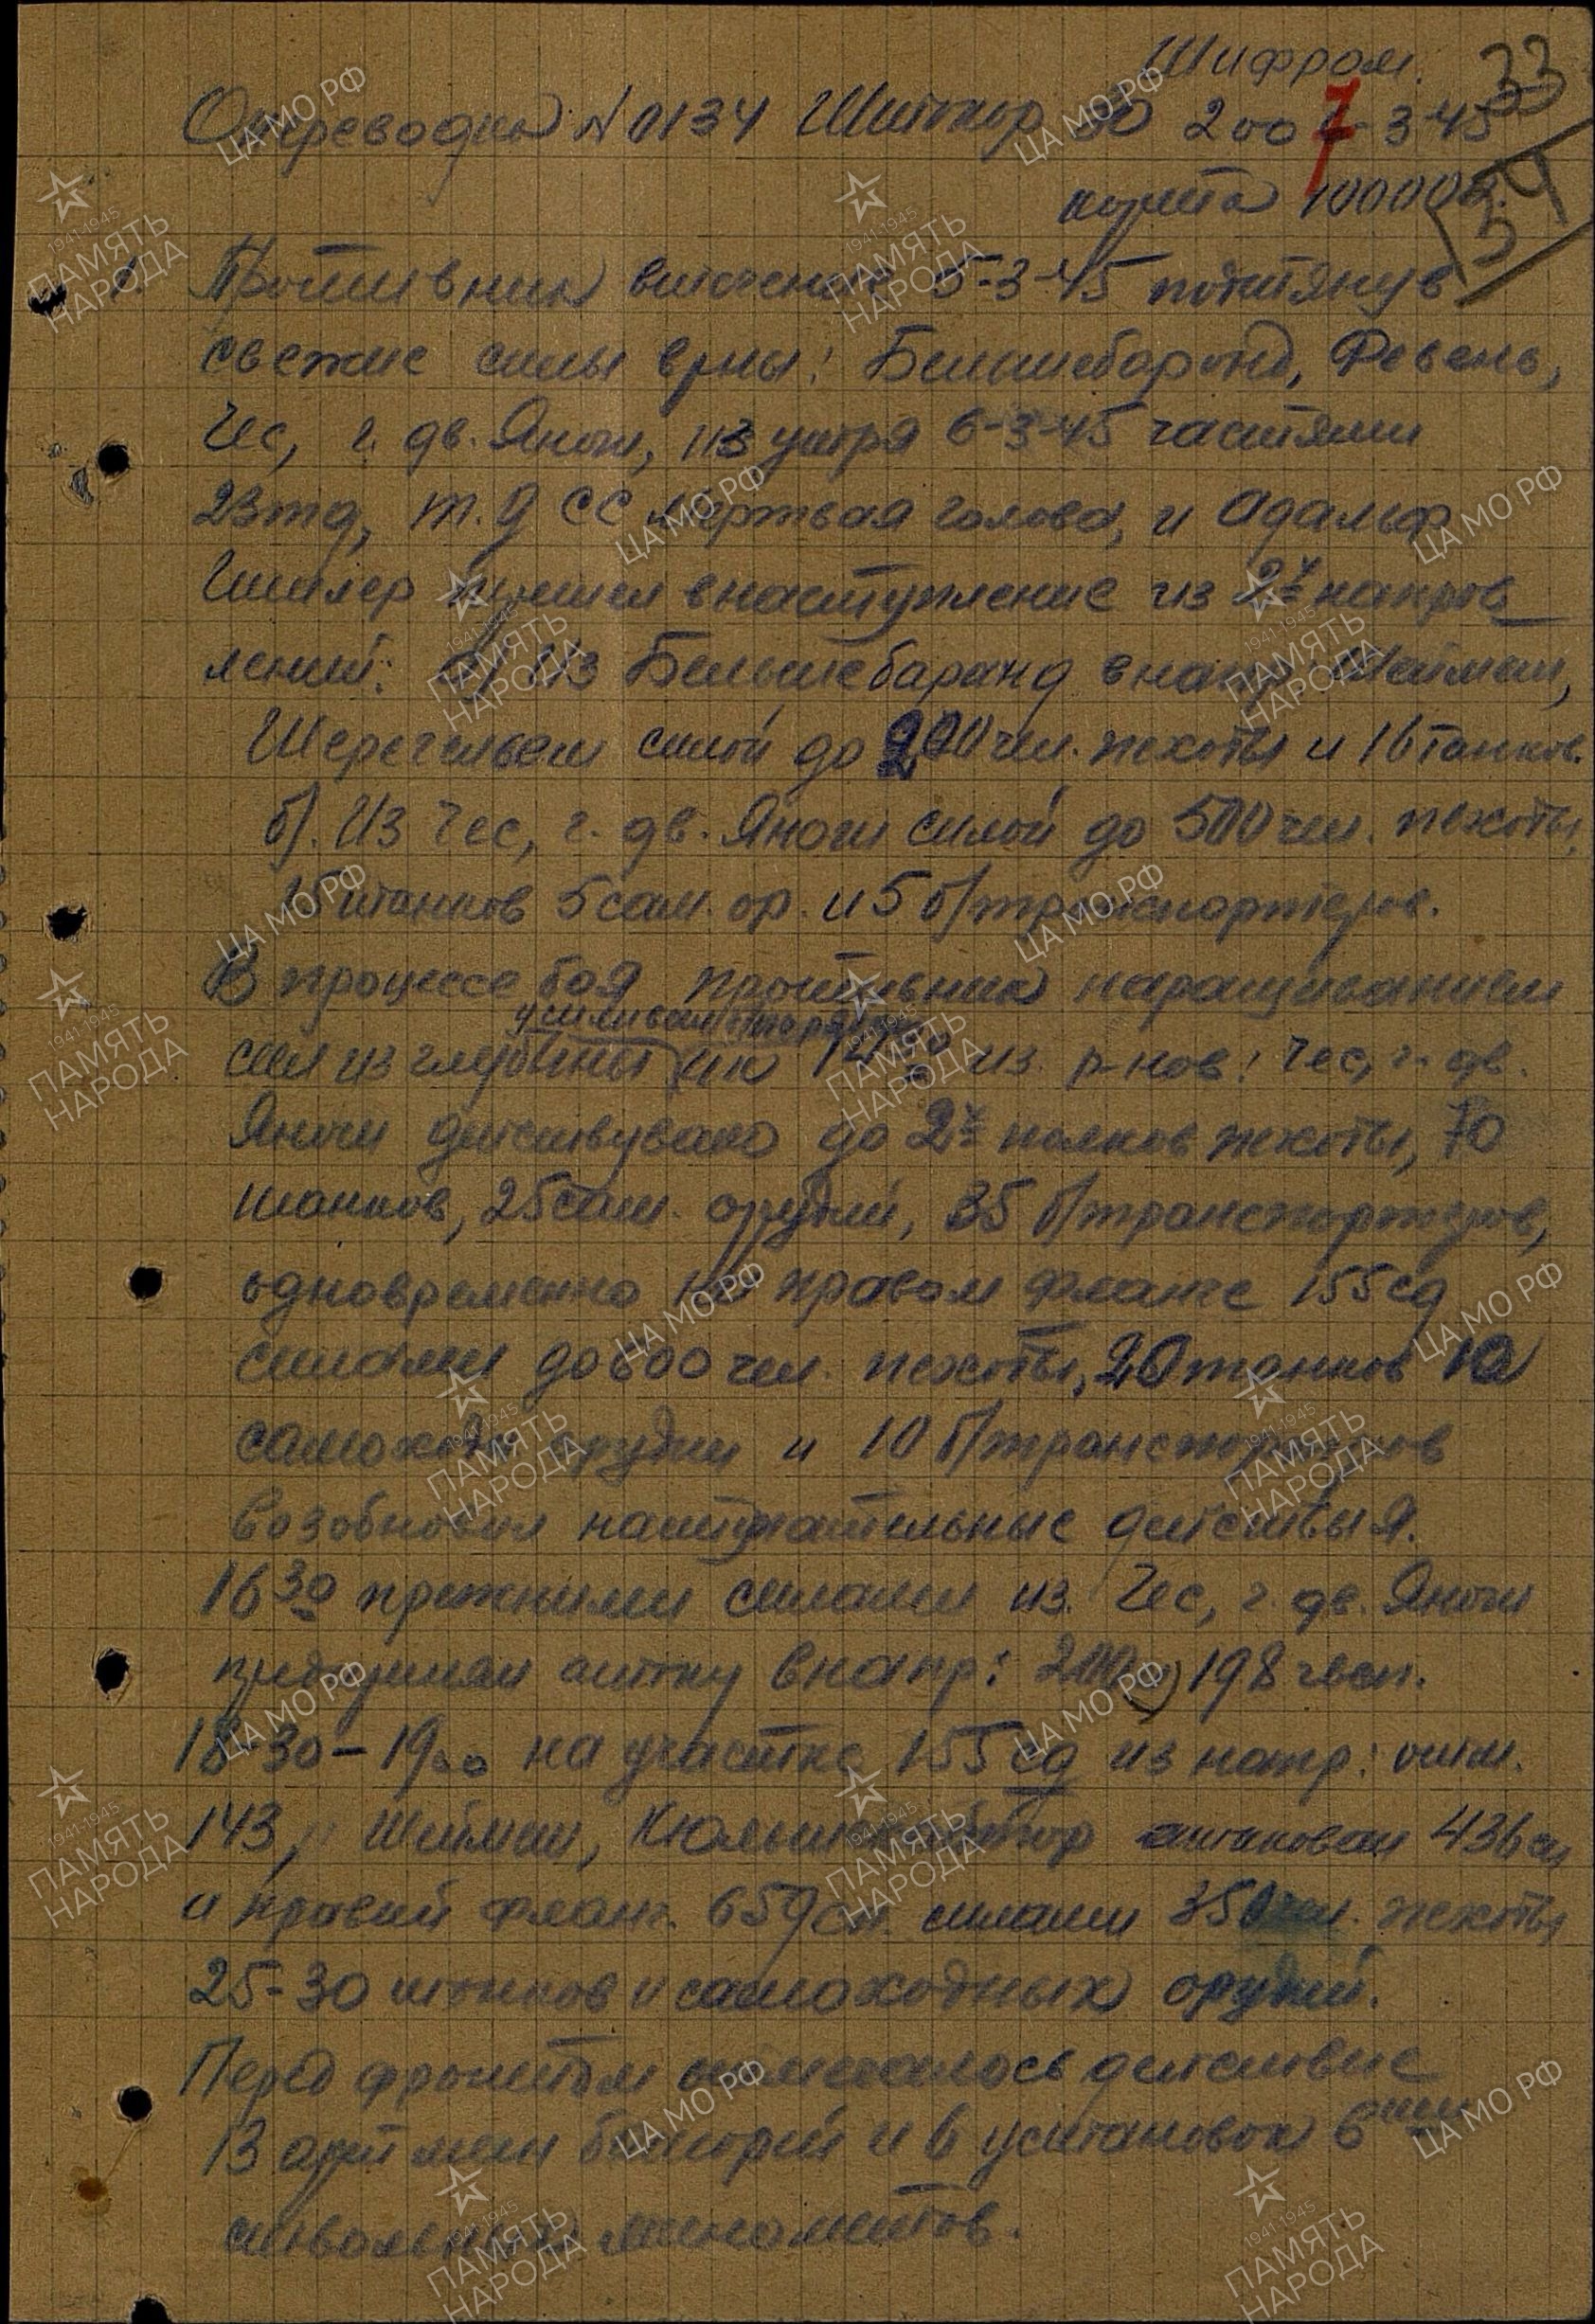 Шифром. 33
Оперсводка N 0134 Штакор 30 200 7-3-45
карта 100000. 34
1. Противник втечение 5-3-45 подтянув
свежие силы в рны: Бельшебаранд, Февень,
Чес, г. дв. Яноши, и с утра 6-3-45 частями
23 тд, т.д СС мертвая голова, и Адальф
Гитлер пришел в наступление из 2х направ
лений: а) Из Бельшебаранд в напр: Шеймеи,
Шерегельеш силой до 200 чел. пехоты и 16 танков.
б). Из Чес, г. дв. Яноши силой до 500 чел. пехоты,
15 танков 5 сам. ор. и 5 б/транспортеров.
В процессе боя противник наращиванием
сил из глубины усиливал и к из р-нов: Чес, г. дв.
Яноши действувало до 2х полков пехоты, 70
танков, 25 сам. орудий, 35 б/транспортеров,
одновременно на правом фланге 155 сд
силами до 600 чел. пехоты, 20 танков 10
самоходн орудий и 10 б/транспортеров
возобновил наступательные действия.
16 30 прежними силами из Чес, г. дв. Яноши
предпринял атаку в напр: 200, 198 г.всп.
18-30 – 19 00 на участке 155 сд из напр: отм.
143, Шеймеи, атаковал 436 сп
и правый фланг 659 сп. силами 350 чел. пехоты
25-30 танков и самоходных орудий.
Перед фронтом отмечалось действие
13 арт мин батарей и 6 установок 6 ти
ствольных минометов.
ЦА МО РФ
1941-1945
ПАМЯТЬ
НАРОДА